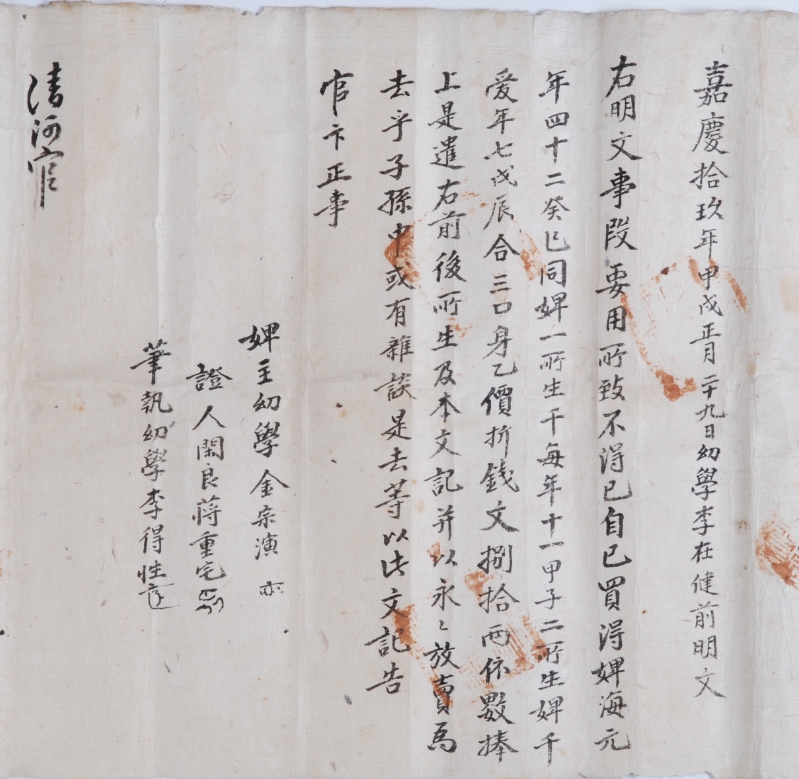 嘉慶拾玖年甲戌正月二十九日幼學李在健前明文
右明文事段要用所致不得已自己買得婢海元
年四十二癸巳同婢一所生千每年十一甲子二所生婢千
愛年七戊辰合三口身乙價折錢文捌拾兩依數捧
上是遣右前後所生及本文記幷以永々放賣爲
去乎子孫中或有雜談是去等以此文記告
官卞正事
婢主幼學金宗演
證人閑良蔣重宅
筆執幼學李得性
淸河官